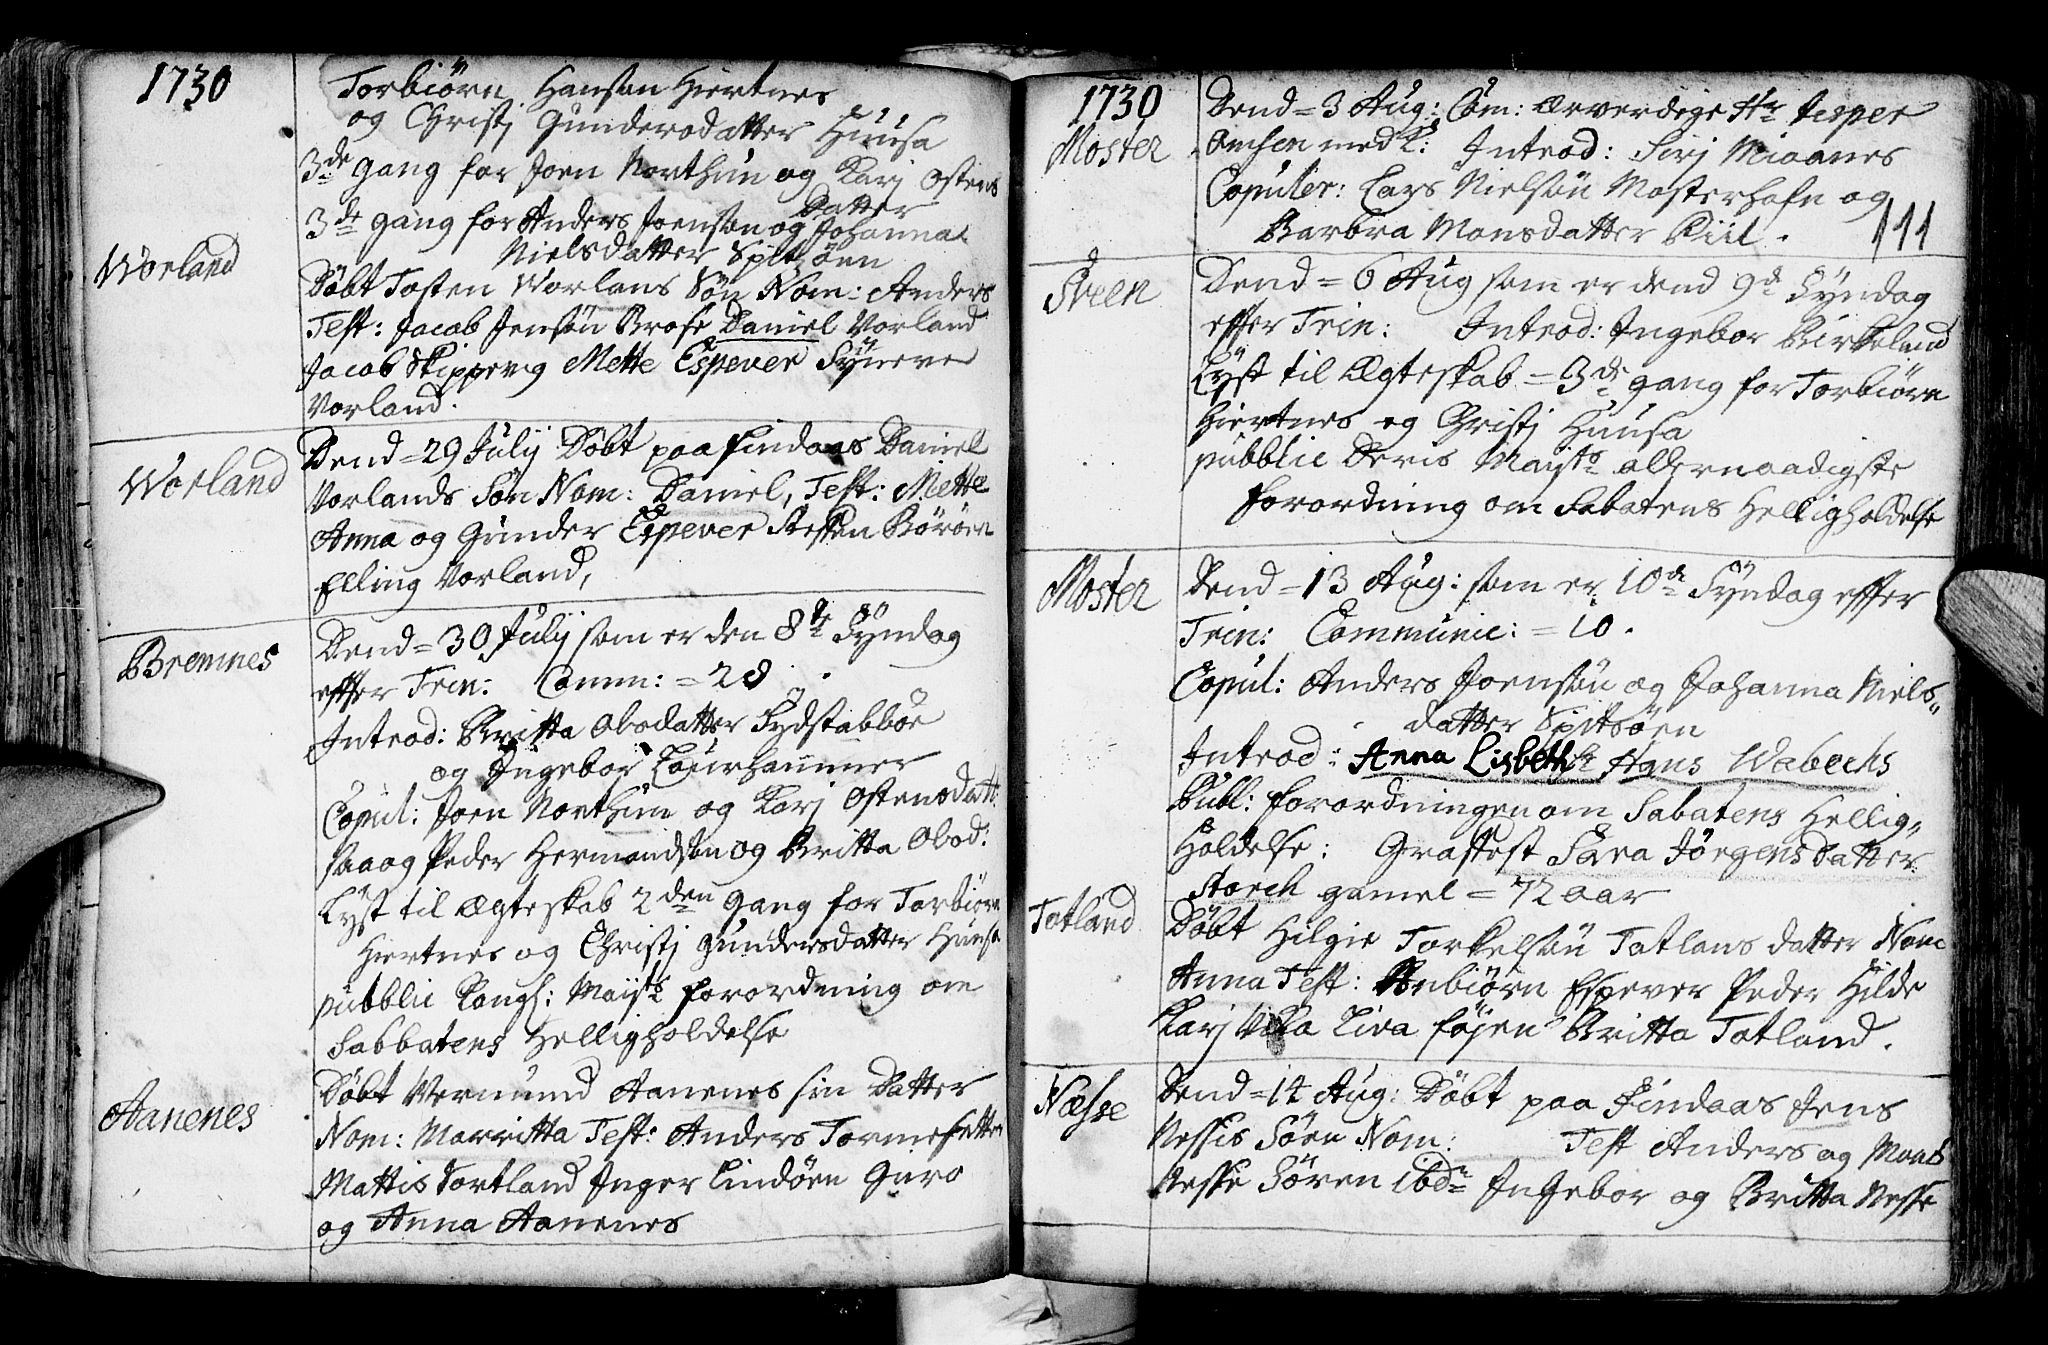 1730
Torbiørn Hanson Hiertnes
og Christj Gundersdatter Huusa
3de gang for Joen Northun og Karj Ostens
Datter
3de gang for Anders Joenson og Johanna
Nielsdatter Spitsöen
Worland
Döbt Tosten Worlans Sön Nom: Anders
Test: Jacob Jensön Brose Daniel Vorland
Jacob Skippevig Mette Espever Synneve
Vorland.
Worland
Dend = 29 Julij Döbt paa Findaas Daniel
Vorlands Sön Nom: Daniel, Test: Mette
Anna og Gunder Espever Steffen Böröen
Elling Vorland,
Bremnes
Dend = 30 Julij som er den 8de Syndag
effter Trin: Comm: = 28
Introd: Britta Obosdatter Sydstabböe
og Ingebor Laurhammer
Copul: Joen Northun og Karj Ostensdatt:
saa og Peder Hermandsön og Britta Obod:
Lyst til Ægteskab 2den Gang for Torbiörn
Hiertnes og Christj Gundersdatter Huusa
pubblic Kongl: Mayts forordning om
Sabbatens Helligholdelse
Aanenes
Döbt Vermund Aanenes sin Datter
Nom: Marritta Test: Anders Tormesetter
Mattis Tortland Inger Lindöen Guro
og Anna Aanenes
1730
Moster
Dend = 3 Aug: Com: Ærverdige Hr Jesper
med K: Introd: Sirj Mioanes
Copuler: Lars Nielsön Mosterhafn og
Barbra Monsdatter Kiil.
111
Sveen
Dend = 6 Aug som er dend 9de Syndag
effter Trin: Introd: Ingebor Birkeland
Lyst til Ægteskab = 3de gang for Torbiörn
Hiertnes og Christj Huusa
pubblic Deris Mayts allernaadigste
forordning om Sabatens Helligholdelse
Moster
Dend = 13 Aug: som er 10de Syndag effter
Trin: Communic: = 10.
Copul: Anders Joensön og Johanna Niels„
datter Spitsöen
Introd: Anna Lisbeth Hr Hans Webechs
Publ: forordningen om Sabatens Hellig„
Holdelse: Grasfest Sara Jörgensdatter
Storch gamel = 72 aar
Totland
Döbt Hilgie Torkelsön Totlans datter Nom
Anna Test: Anbiörn Espever Peder Hilde
Karj Viha Liva föjen Britta Totland.
Næsse
Dend = 14 Aug: Döbt paa Findaas Jens
Nessis Sön Nom: Test Anders og Mons
Nesse Sören ibdm Ingebor og Britta Nesse